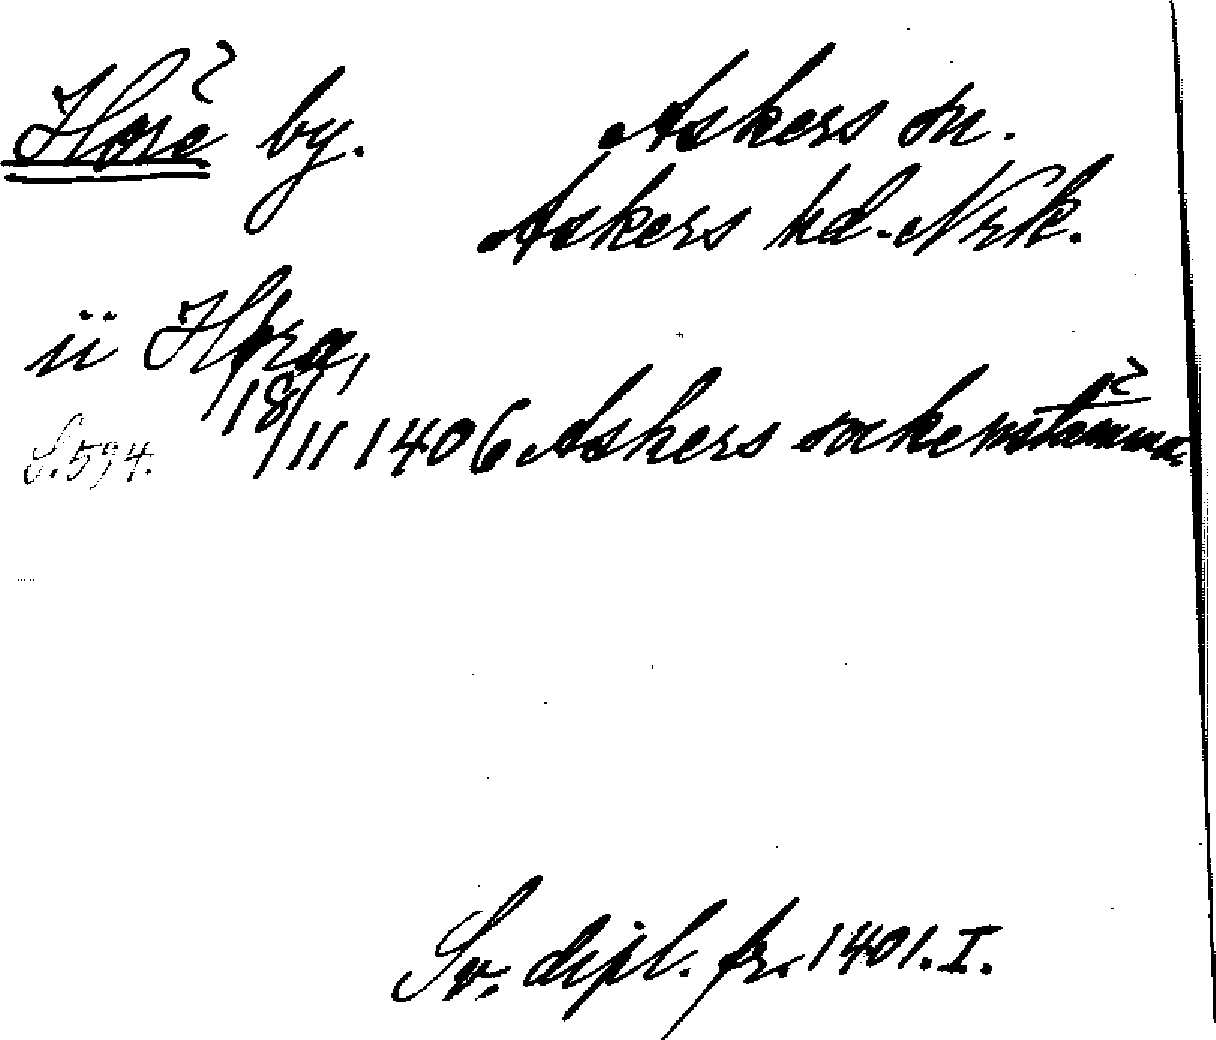 Hora by. Askers sn.
Askers hd. Nrk.
ii Hora,
S. 594. 18/11 1406 Askers sockenstämma,
Sv. dipl. fr. 1401. I.